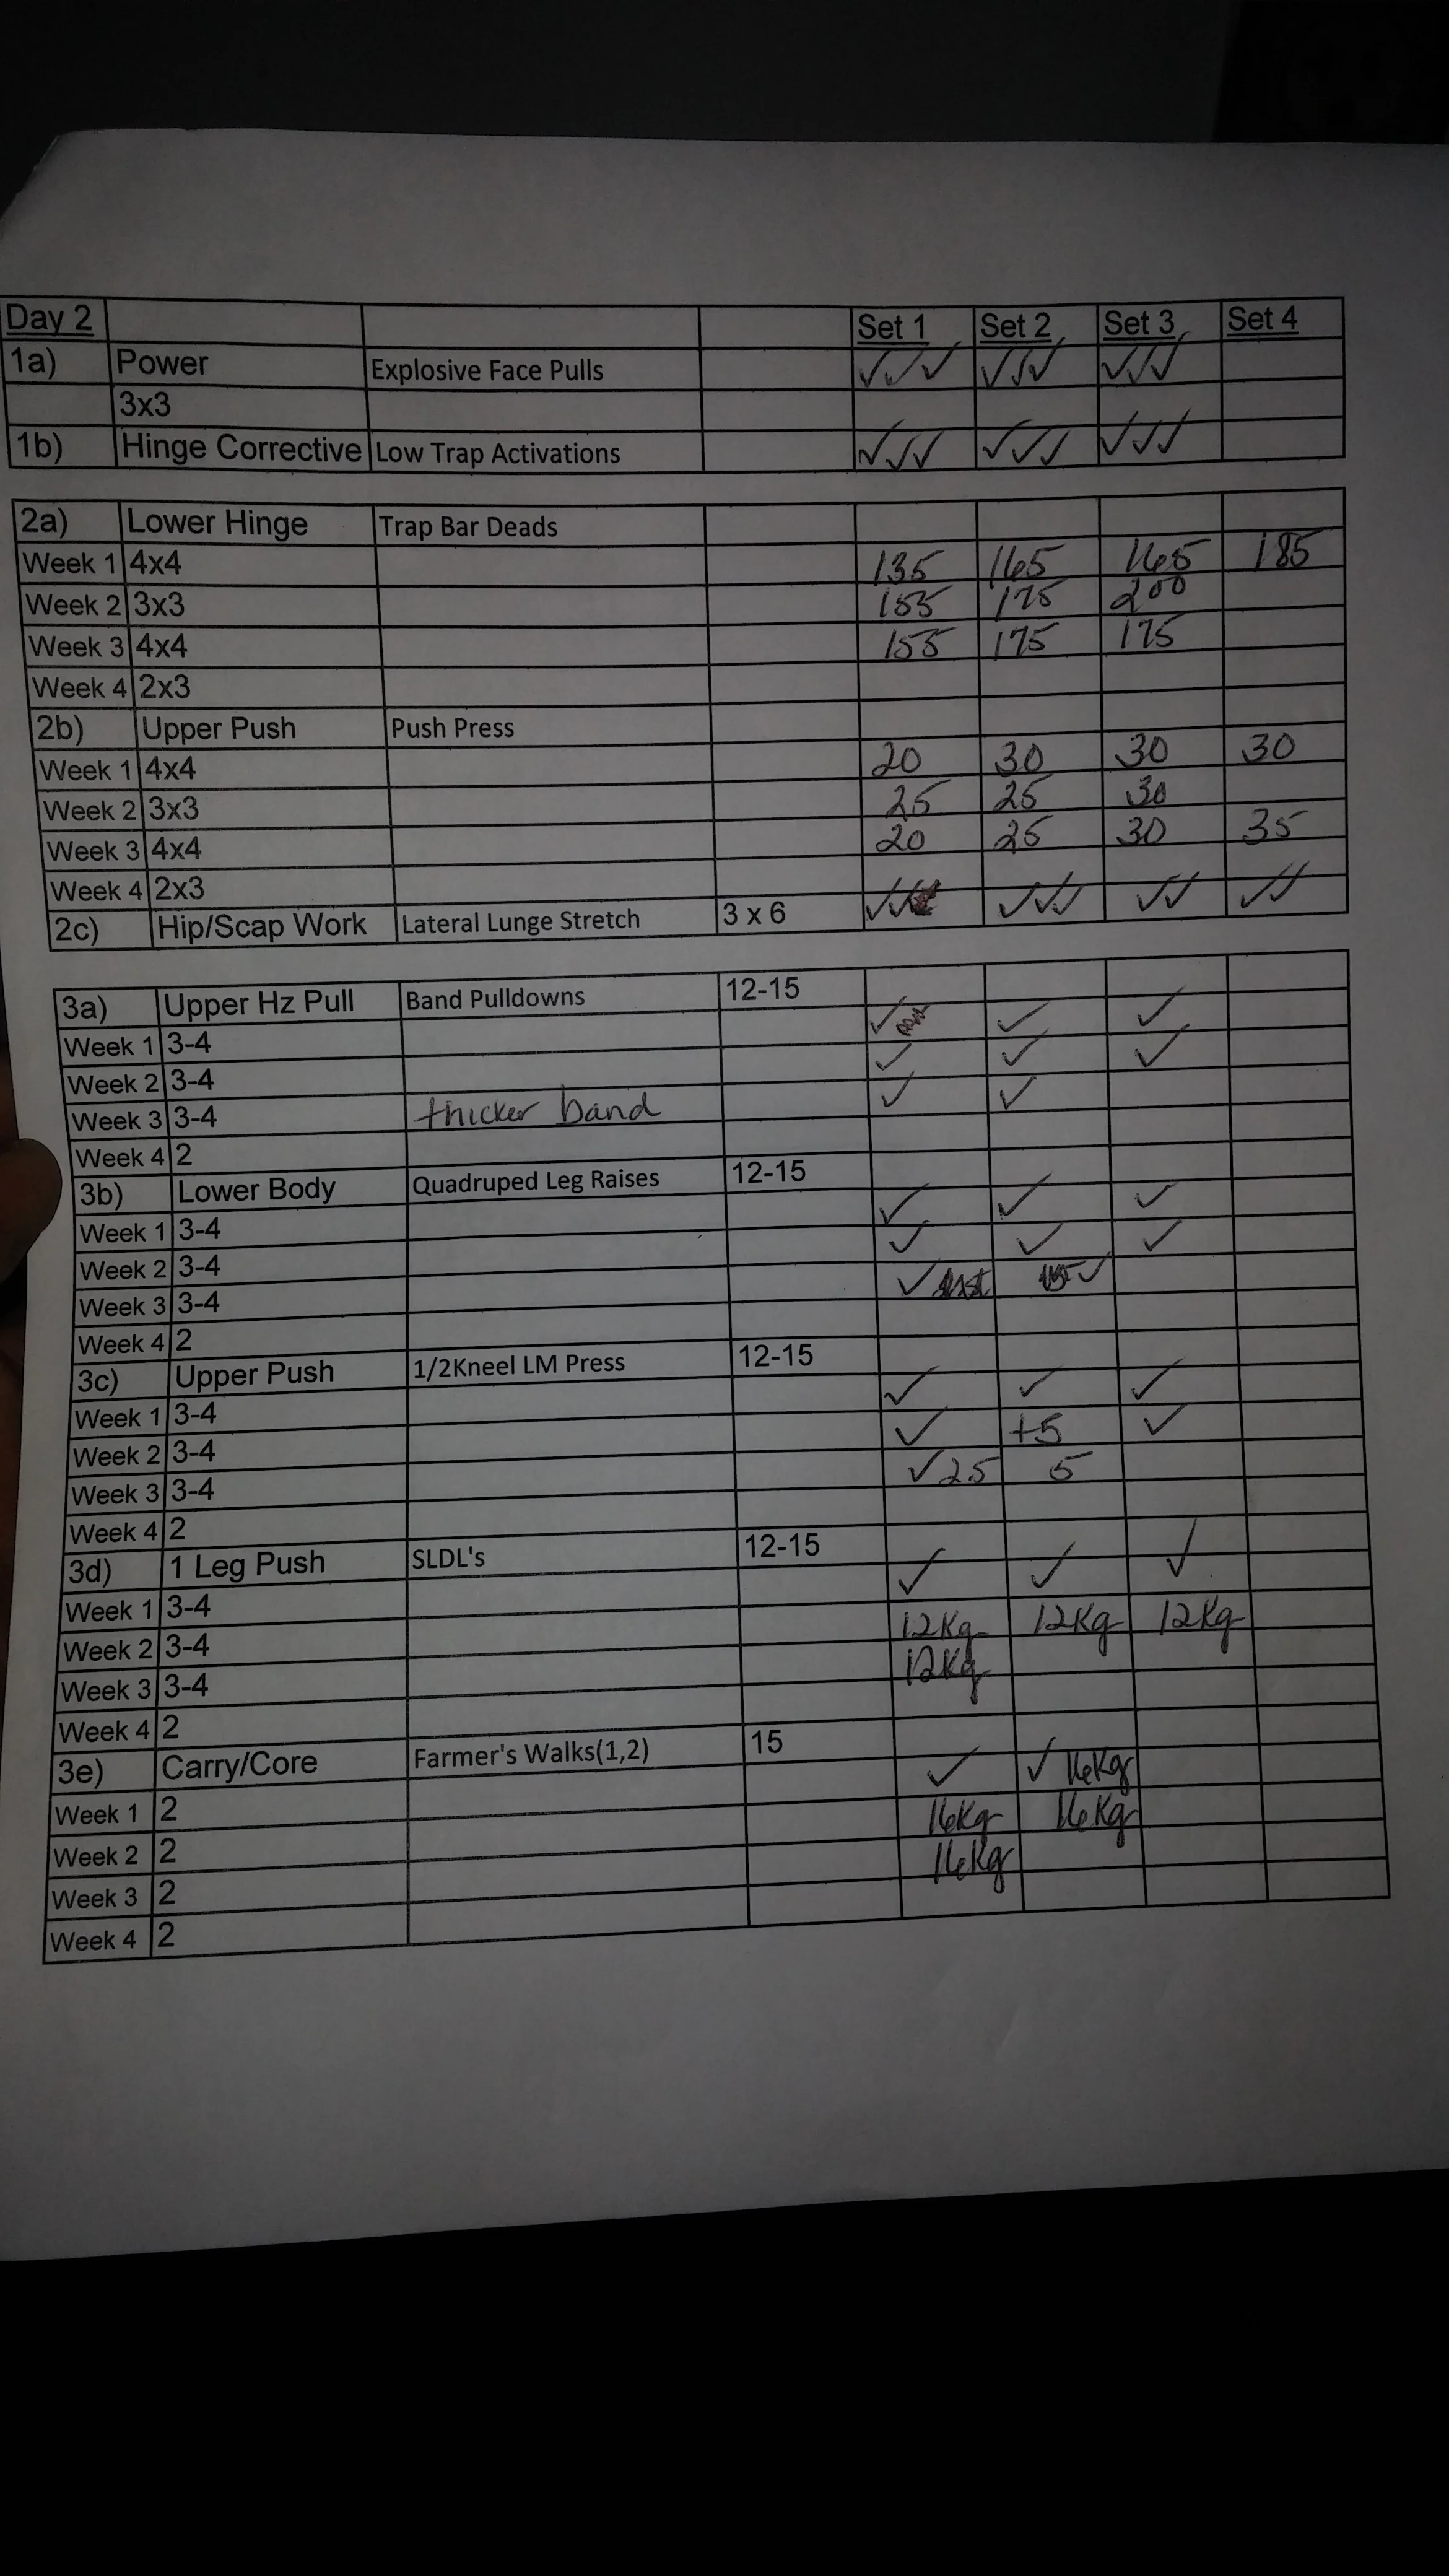 Day 2 Set 1 Set 2 Set 3 Set 4
1a) Power Explosive Face Pulls ✓✓✓ ✓✓✓ ✓✓✓
3x3
1b) Hinge Corrective Low Trap Activations ✓✓✓ ✓✓✓ ✓✓✓
2a) Lower Hinge Trap Bar Deads
Week 1 4x4 135 165 165 185
Week 2 3x3 155 175 200
Week 3 4x4 155 175 175
Week 4 2x3
2b) Upper Push Push Press
Week 1 4x4 20 30 30 30
Week 2 3x3 25 25 30
Week 3 4x4 20 25 30 35
Week 4 2x3
2c) Hip/Scap Work Lateral Lunge Stretch 3 x 6 ✓✓ ✓✓✓ ✓✓ ✓✓
3a) Upper Hz Pull Band Pulldowns 12-15
Week 1 3-4 ✓ ✓ ✓
Week 2 3-4 ✓ ✓ ✓
Week 3 3-4 thicker band ✓ ✓
Week 4 2
3b) Lower Body Quadruped Leg Raises 12-15
Week 1 3-4 ✓ ✓ ✓
Week 2 3-4 ✓ ✓ ✓
Week 3 3-4 ✓ ✓
Week 4 2
3c) Upper Push 1/2Kneel LM Press 12-15
Week 1 3-4 ✓ ✓ ✓
Week 2 3-4 ✓ +5 ✓
Week 3 3-4 ✓ 25 5
Week 4 2
3d) 1 Leg Push SLDL's 12-15
Week 1 3-4 ✓ ✓ ✓
Week 2 3-4 12Kg 12Kg 12Kg
Week 3 3-4 12Kg
Week 4 2
3e) Carry/Core Farmer's Walks(1,2) 15
Week 1 2 ✓ ✓ 16Kg
Week 2 2 16Kg 16Kg
Week 3 2 16Kg
Week 4 2